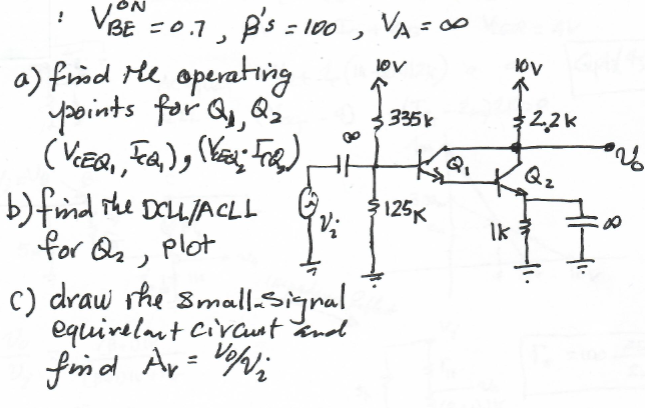 : V_BE^ON = 0.7 , β's = 100 , V_A = ∞
a) find the operating
points for Q1, Q2
(V_CEQ1, I_CQ1), (V_CEQ2, I_CQ2)
b) find the DCLL/ACLL
for Q2, plot
c) draw the small-signal
equivelant circuit and
find Av = Vo/Vi
10V
10V
335k
2.2k
∞
Q1
Vo
Q2
Vi
125K
1k
∞